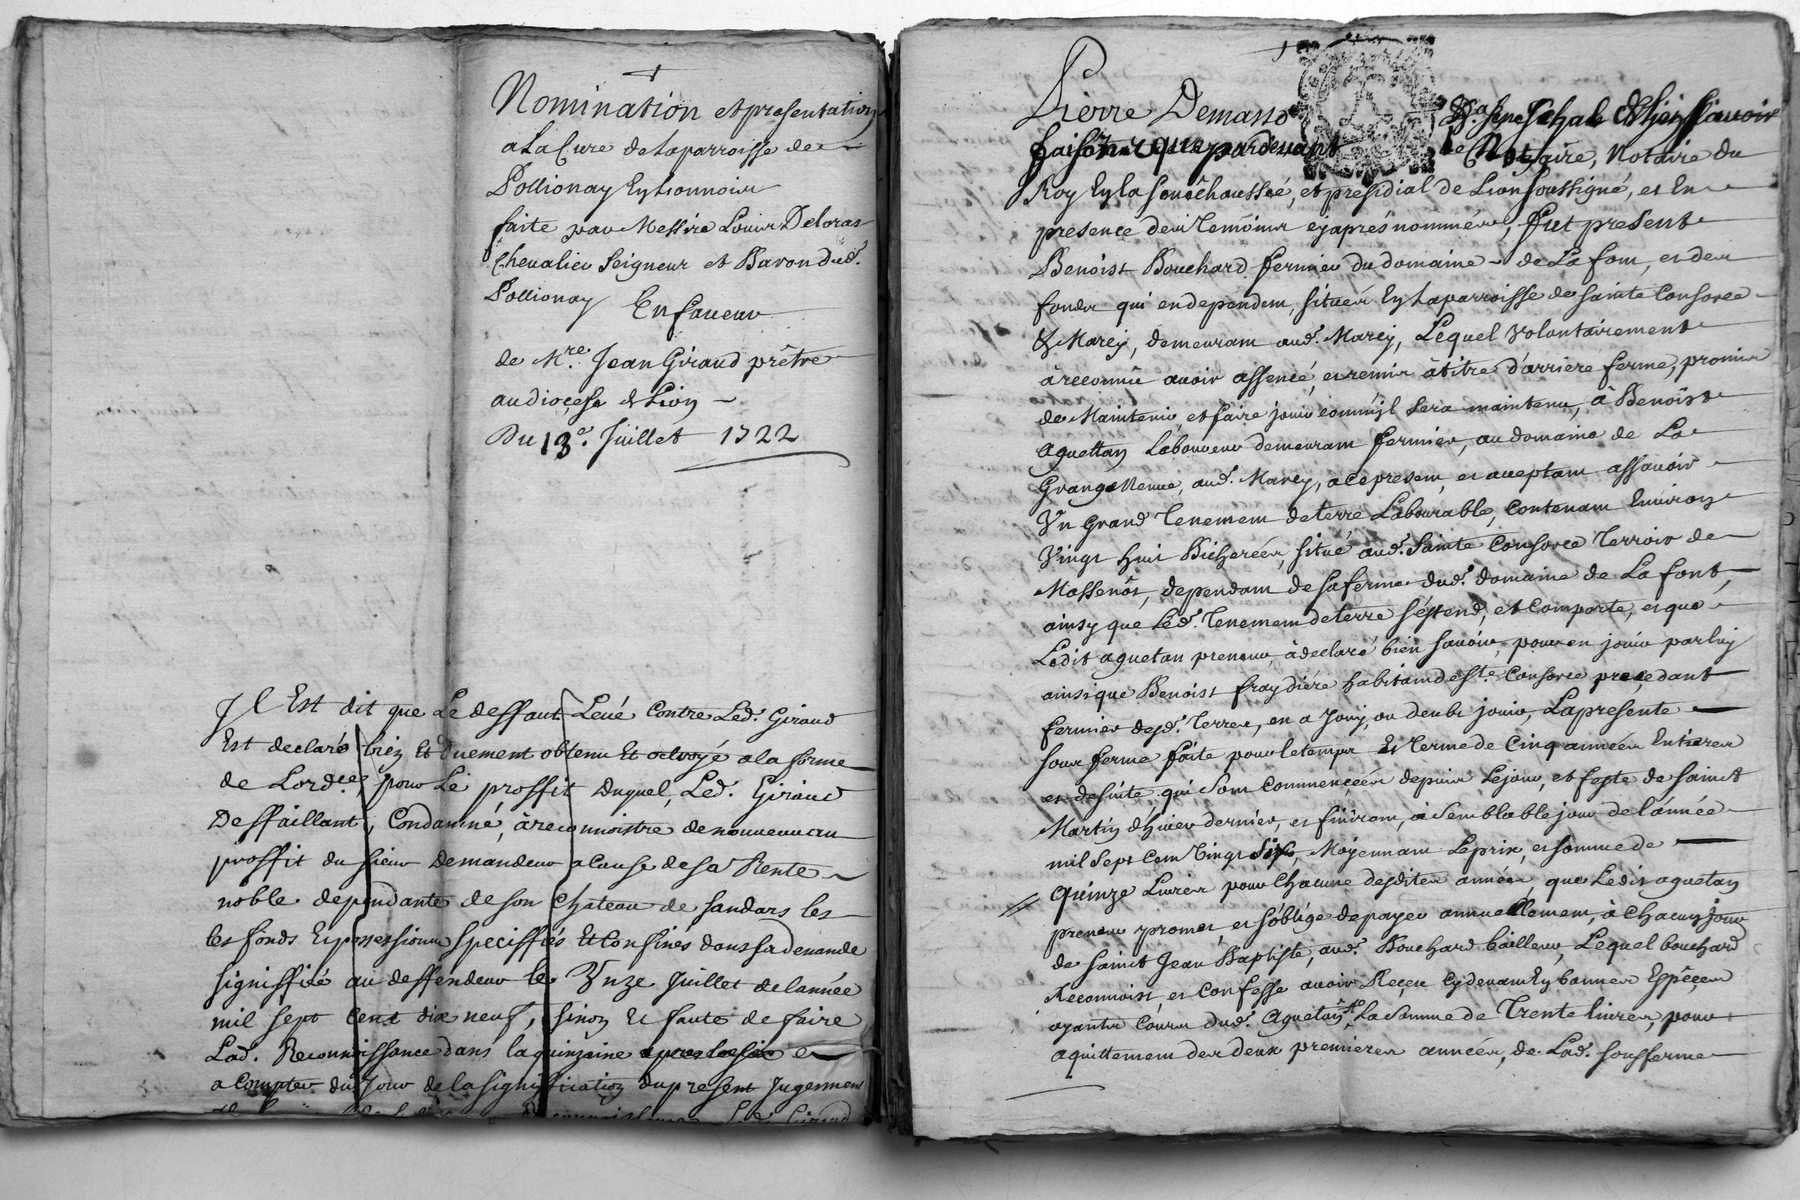 Nomination et presentation
a La Cure de Laparroisse de
Pollionay En Lionnois
faite par Messire Louis Deloras
Chevalier Seigneur et Baron dud.
Pollionay En faveur
de Mre. Jean Giraud prêtre
au diocese de Lion
Du 13e. Juillet 1722
Jl Est dit que Le deffaut Levé Contre Led. Giraud
Est declaré bien Et Duement obtenu Et octroyé a la forme
de Lordce. pour Le proffit Duquel, Led. Giraud
Deffaillant, Condamné, à reconnoistre de nouveau au
proffit du sieur Demandeur a cause de sa Rente
noble dependante de son Chateau de Sandars les
les fonds Et possessions speciffiés Et Confinés dans sa demande
signiffiée au deffendeur le Unze Juillet de lannée
mil sept Cent dix neuf, sinon Et faute de faire
Lad. Reconnoissance dans la quinzaine
a Compter du Jour de la signification du present Jugement
Led. Giraud
Pierre Demasso
faisons que pardevant Notaire, Notaire du
Roy En la Senêchaussée, et presidial de Lion soussigné, et En
presence des Temoins cy aprés nommés, fut present
Benoist Bouchard fermier du domaine de La font, et des
fonds qui en dependent, situés En Laparroisse de Sainte Consorce
& Marcy, demeurant aud. Marcy, Lequel Volontairement
à reconnû avoir assencé, et remis à titre d'arriere ferme, promis
de Maintenir, et faire jouir comm'jl sera maintenu, à Benoist
aguettan Laboureur demeurant fermier, au domaine de La
Grange Neuve, aud. Marcy, a ce present, et acceptant assavoir
Vn Grand Tenement de terre Labourable, Contenant Environ
Vingt huit Bicherées, situé aud. Sainte Consorce Terroir de
Massenot, dependant de sa ferme dud. domaine de La font,
ainsy que Led. Tenement de terre s'éstend, et Comporte, et que
Ledit aguetan preneur, à declaré bien savoir, pour en jouir par luy
ainsi que Benoist fraydiére habitant de Ste. Consorce precedant
fermier desd. Terres, en a Jouy, ou deub jouir, La presente
sous ferme faite pour le temps Et Terme de Cinq années Entieres
et de suite, qui sont Commencées depuis Le jour, et feste de Saint
Martin d'hiver dernier, et finiront, a semblable jour de l'année
mil Sept Cent Vingt Six, Moyennant Le prix, et somme de
Quinze Livres pour Chacune desdites années, que Ledit aguetan
preneur promet, et s'oblige de payer annuellement, à Chacun jour
de Saint Jean Baptiste, aud. Bouchard bailleur, Lequel bouchard
Reconnoist, et Confesse avoir Reçeu Cy devant En bonnes Espêces
ayants Cours dud. Aguetan, La Somme de Trente livres, pour
aquittement des deux premieres années, de Lad. sousferme